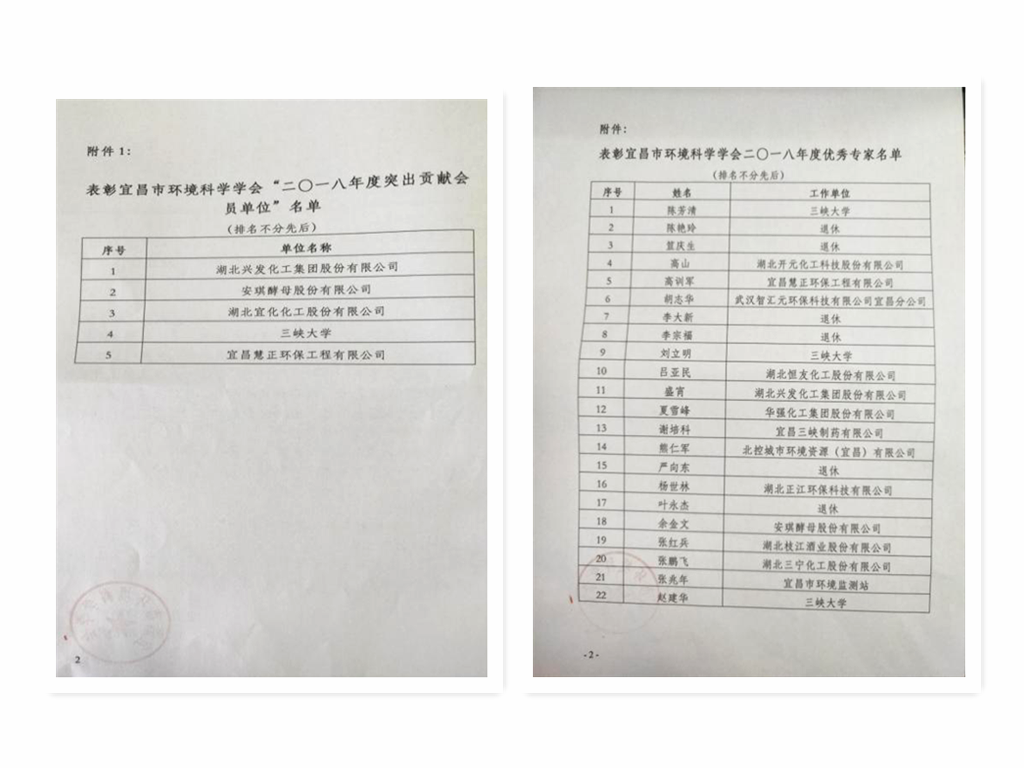 附件 1:
表彰宜昌市环境科学学会“二〇一八年度突出贡献会
员单位”名单
(排名不分先后)
序号 单位名称
1 湖北兴发化工集团股份有限公司
2 安琪酵母股份有限公司
3 湖北宜化化工股份有限公司
4 三峡大学
5 宜昌慧正环保工程有限公司
2
附件:
表彰宜昌市环境科学学会二〇一八年度优秀专家名单
(排名不分先后)
序号 姓名 工作单位
1 陈芳清 三峡大学
2 陈艳玲 退休
3 庆生 退休
4 高山 湖北开元化工科技股份有限公司
5 高训军 宜昌慧正环保工程有限公司
6 胡志华 武汉智汇元环保科技有限公司宜昌分公司
7 李大新 退休
8 李宗福 退休
9 刘立明 三峡大学
10 吕亚民 湖北恒友化工股份有限公司
11 盛宵 湖北兴发化工集团股份有限公司
12 夏雪峰 华强化工集团股份有限公司
13 谢培科 宜昌三峡制药有限公司
14 熊仁军 北控城市环境资源（宜昌）有限公司
15 严向东 退休
16 杨世林 湖北正江环保科技有限公司
17 叶永杰 退休
18 余金文 安琪酵母股份有限公司
19 张红兵 湖北枝江酒业股份有限公司
20 张鹏飞 湖北三宁化工股份有限公司
21 张兆年 宜昌市环境监测站
22 赵建华 三峡大学
- 2 -